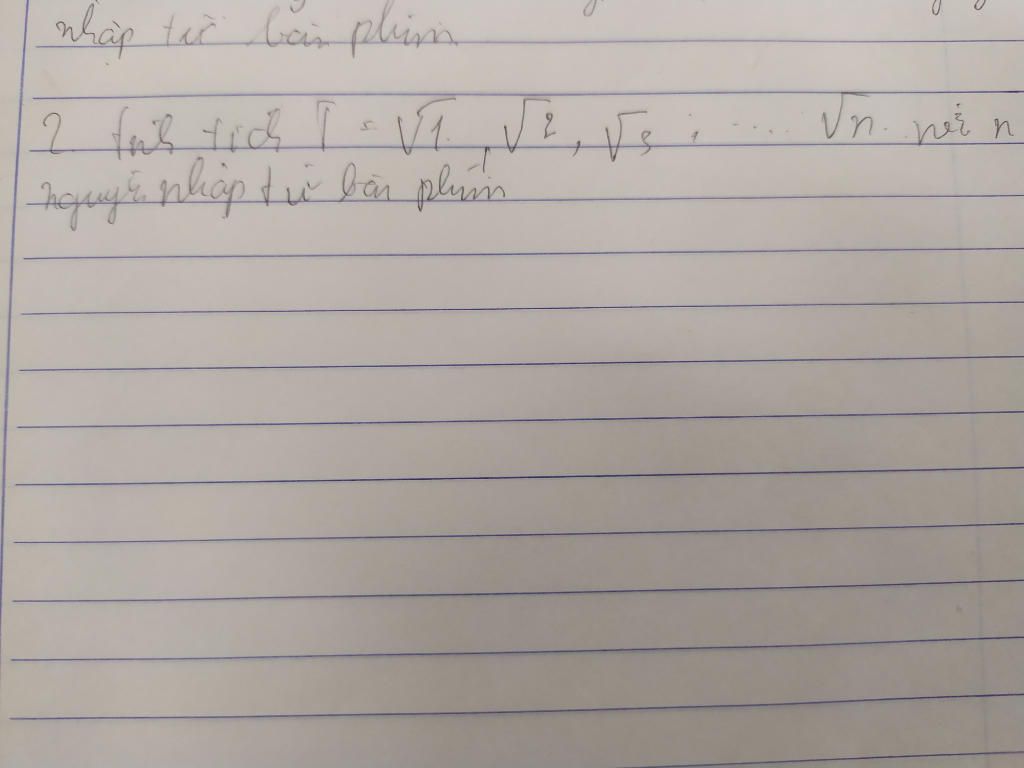 nhập từ bàn phím
2 tính tích T = √1, √2, √3, .... √n. với n
nguyê nhập từ bàn phím